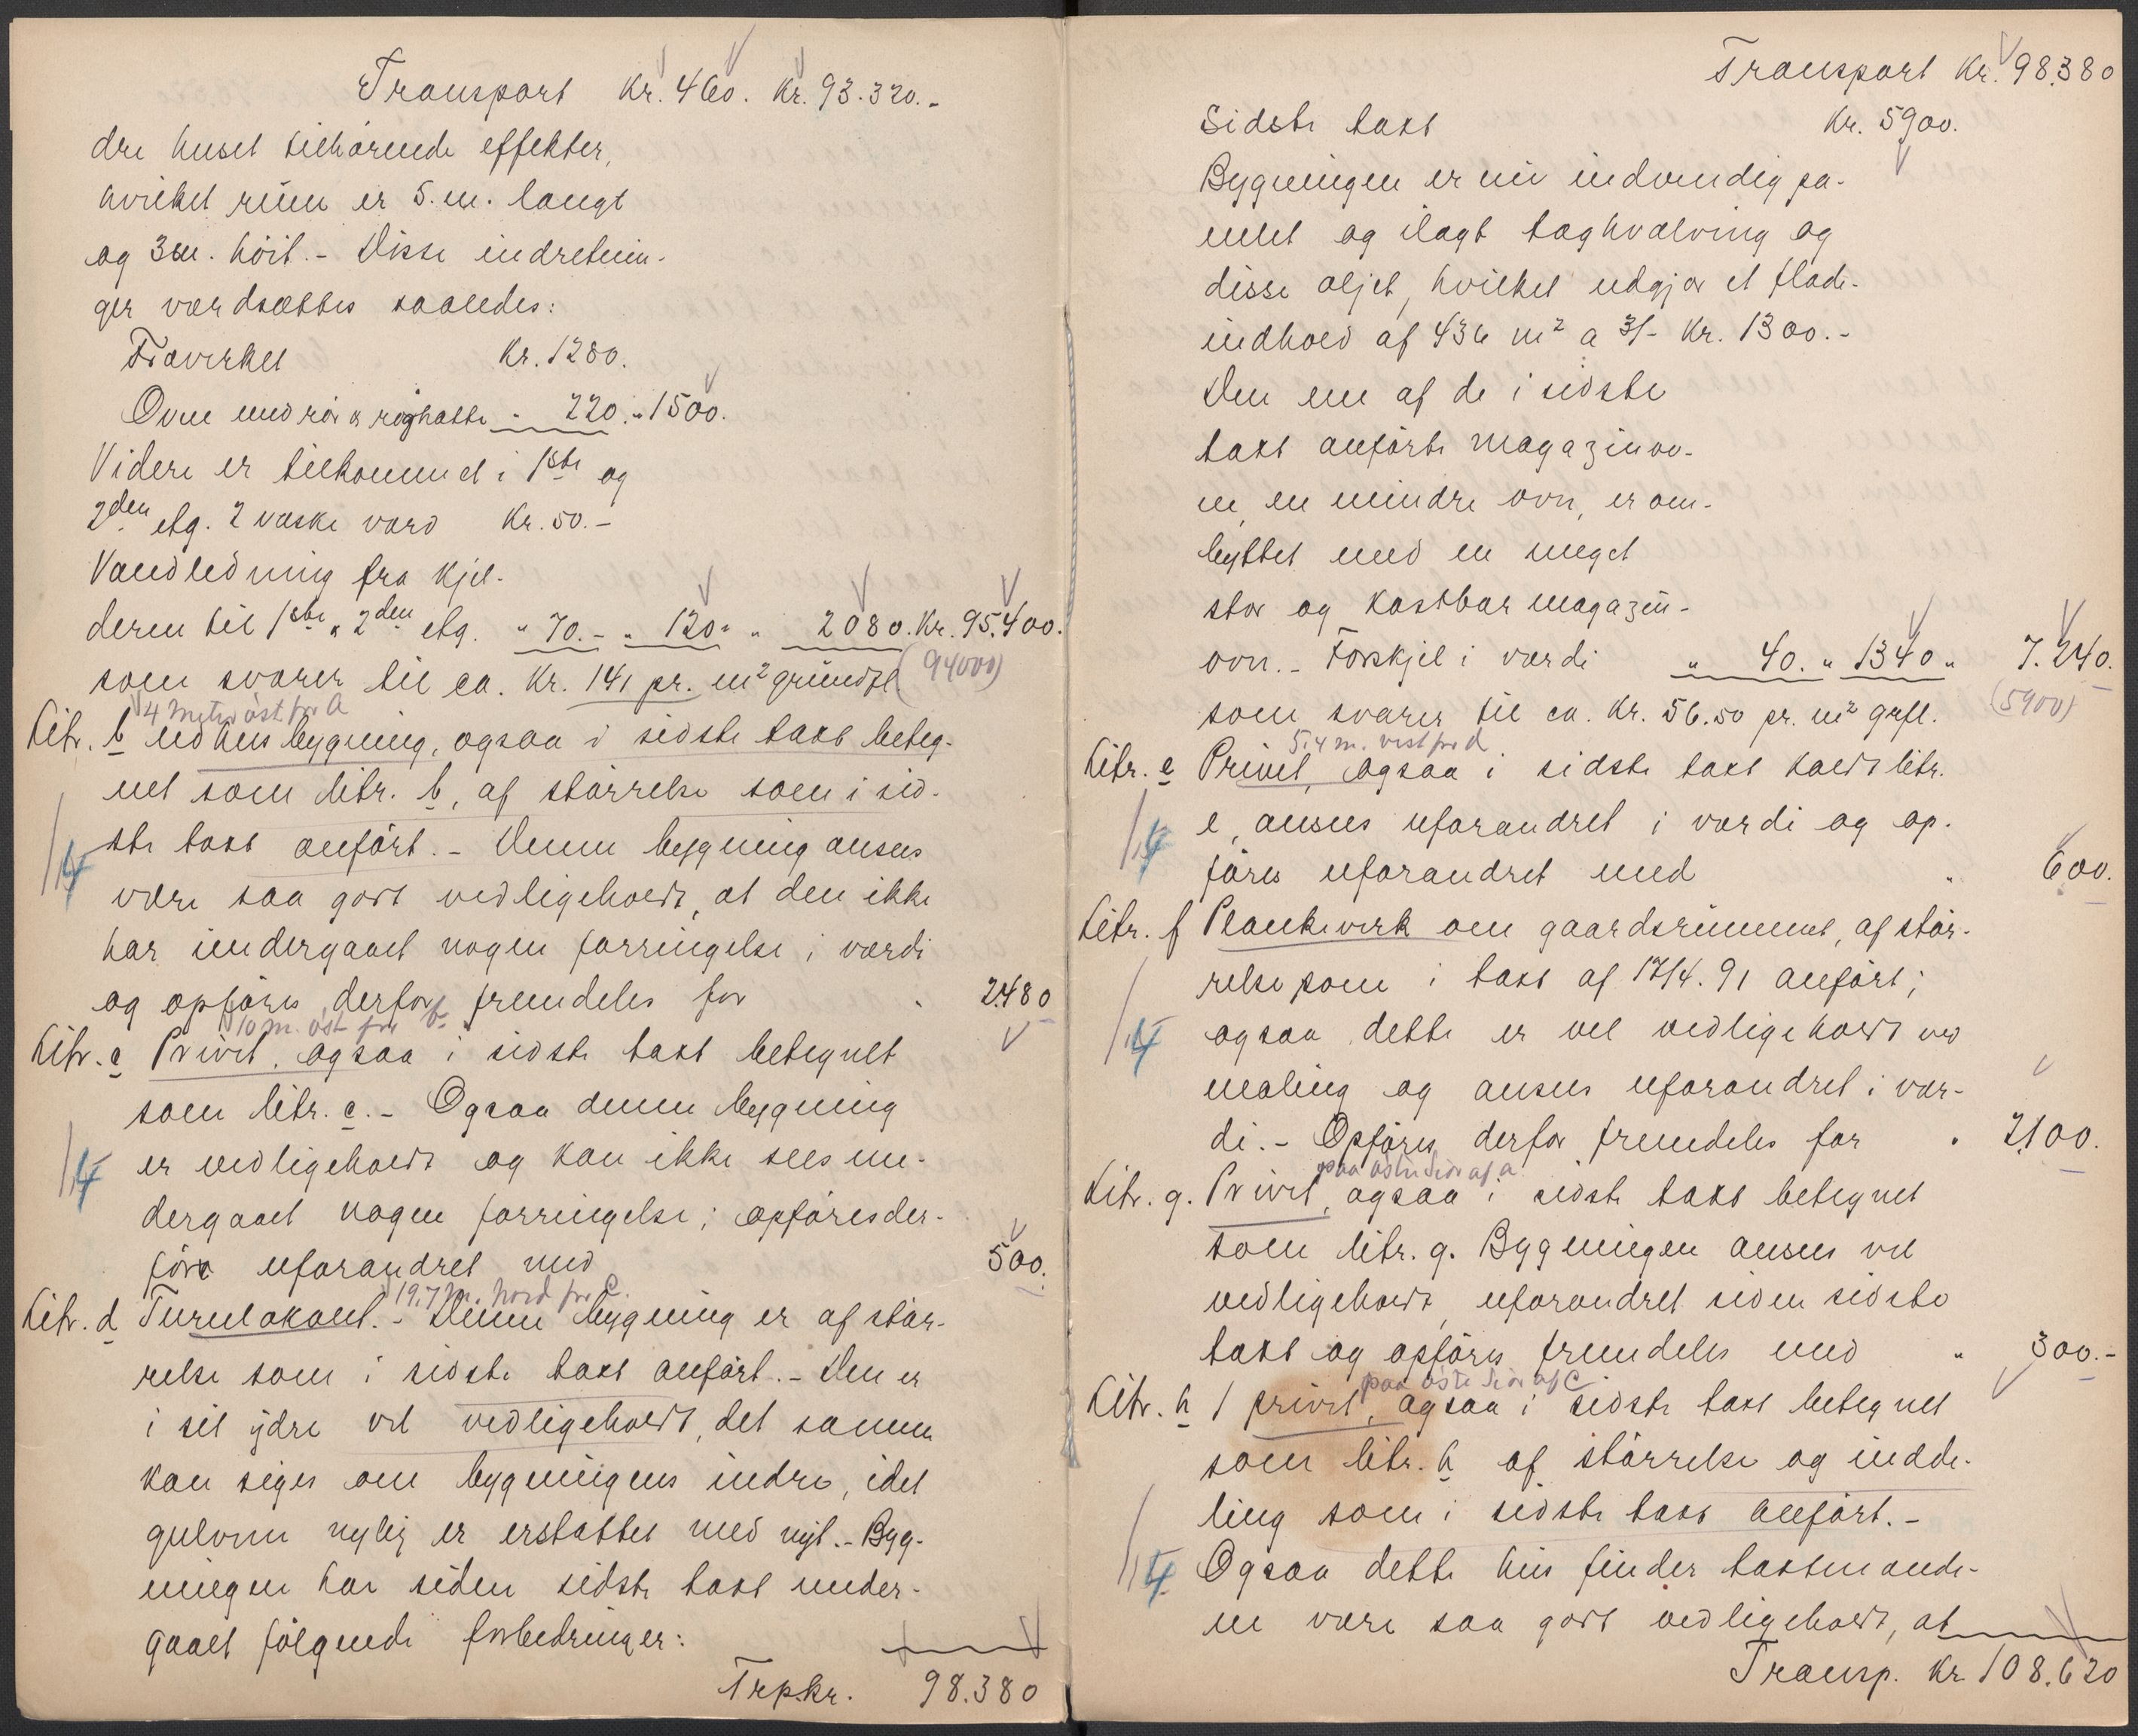 Transport Kr. 460. Kr. 93.320.-
dre huset tilhørende effekter,
hvilket rum er 5.m. langt
og 3m. höit. - Disse indretnin-
ger værdsættes saaledes:
Træverket Kr. 1280.
Ovne med rör & röghatte " 220. " 1500.
Videre er tilkommet i 1ste og
2den etg. 2 vaske værd Kr. 50.-
Vandledning fra kjel-
deren til 1ste & 2den etg. " 70.- " 120. " 2080. Kr. 95.400.
som svarer til ca. Kr. 141 pr. m2 grundfl. (94000)
4 meter öst for A
Litr. b Udhusbygning, ogsaa i sidste taxt beteg-
net som litr. b, af störrelse som i sid-
ste taxt anfört. - Denne bygning ansees
14
være saa godt vedligeholdt, at den ikke
har undergaaet nogen forringelse i værdi
og opföres derfor fremdeles for " 2480
10 m. öst for b
Litr. c Privet, ogsaa i sidste taxt betegnet
som litr. c. - Ogsaa denne bygning
14 er vedligeholdt og kan ikke sees un-
dergaaet nogen forringelse; opföres der-
före uforandret med 500.
19.7 m. nord for C.
Litr. d Turnlokalet. - Denne bygning er af stör-
relse som i sidste taxt anfört. - Den er
i sit ydre vel vedligeholdt, det samme
kan siges om bygningens indre, idet
gulvene nylig er erstattet med nyt. - Byg-
ningen har siden sidste taxt under-
gaaet fölgende forbedringer:
Trp. kr. 98.380
Transport Kr. 98.380
Sidste taxt Kr. 5900.
Bygningen er nu indvendig pa-
nelet og ilagt taghvælving og
disse oljet, hvilket udgjør et flade-
indhold af 436 m2 a 3/- Kr. 1300.-
Den ene af de i sidste
taxt anförte magazinov-
ne, en mindre ovn, er om-
byttet med en meget
stor og kostbar magazin-
ovn. - Forskjel i værdi " 40. " 1340 " 7.240.
som svarer til ca. Kr. 56.50 pr. m2 grfl. (5900)
5.4 m. vest for d
Litr. e Privet, ogsaa i sidste taxt kaldt litr.
14 e, ansees uforandret i værdi og op-
föres uforandret med " 600.
Litr. f Plankeverk om gaardsrummet, af stör-
relse som i taxt af 17/4. 91 anfört;
14 ogsaa dette er vel vedligeholdt ved
maling og ansees uforandret i vær-
di. - Opföres derfor fremdeles for " 2100.
paa östre side af a
Litr. g. Privet, ogsaa i sidste taxt betegnet
som litr. g. Bygningen ansees vel
vedligeholdt, uforandret siden sidste
taxt og opföres fremdeles med " 300.-
paa öste side af C
Litr. h 1 privet, ogsaa i sidste taxt betegnet
som litr. h af störrelse og indde-
ling som i sidste taxt anfört. -
14 Ogsaa dette hus finder taxtmænde-
ne være saa godt vedligeholdt, at
Transp. Kr 108.620